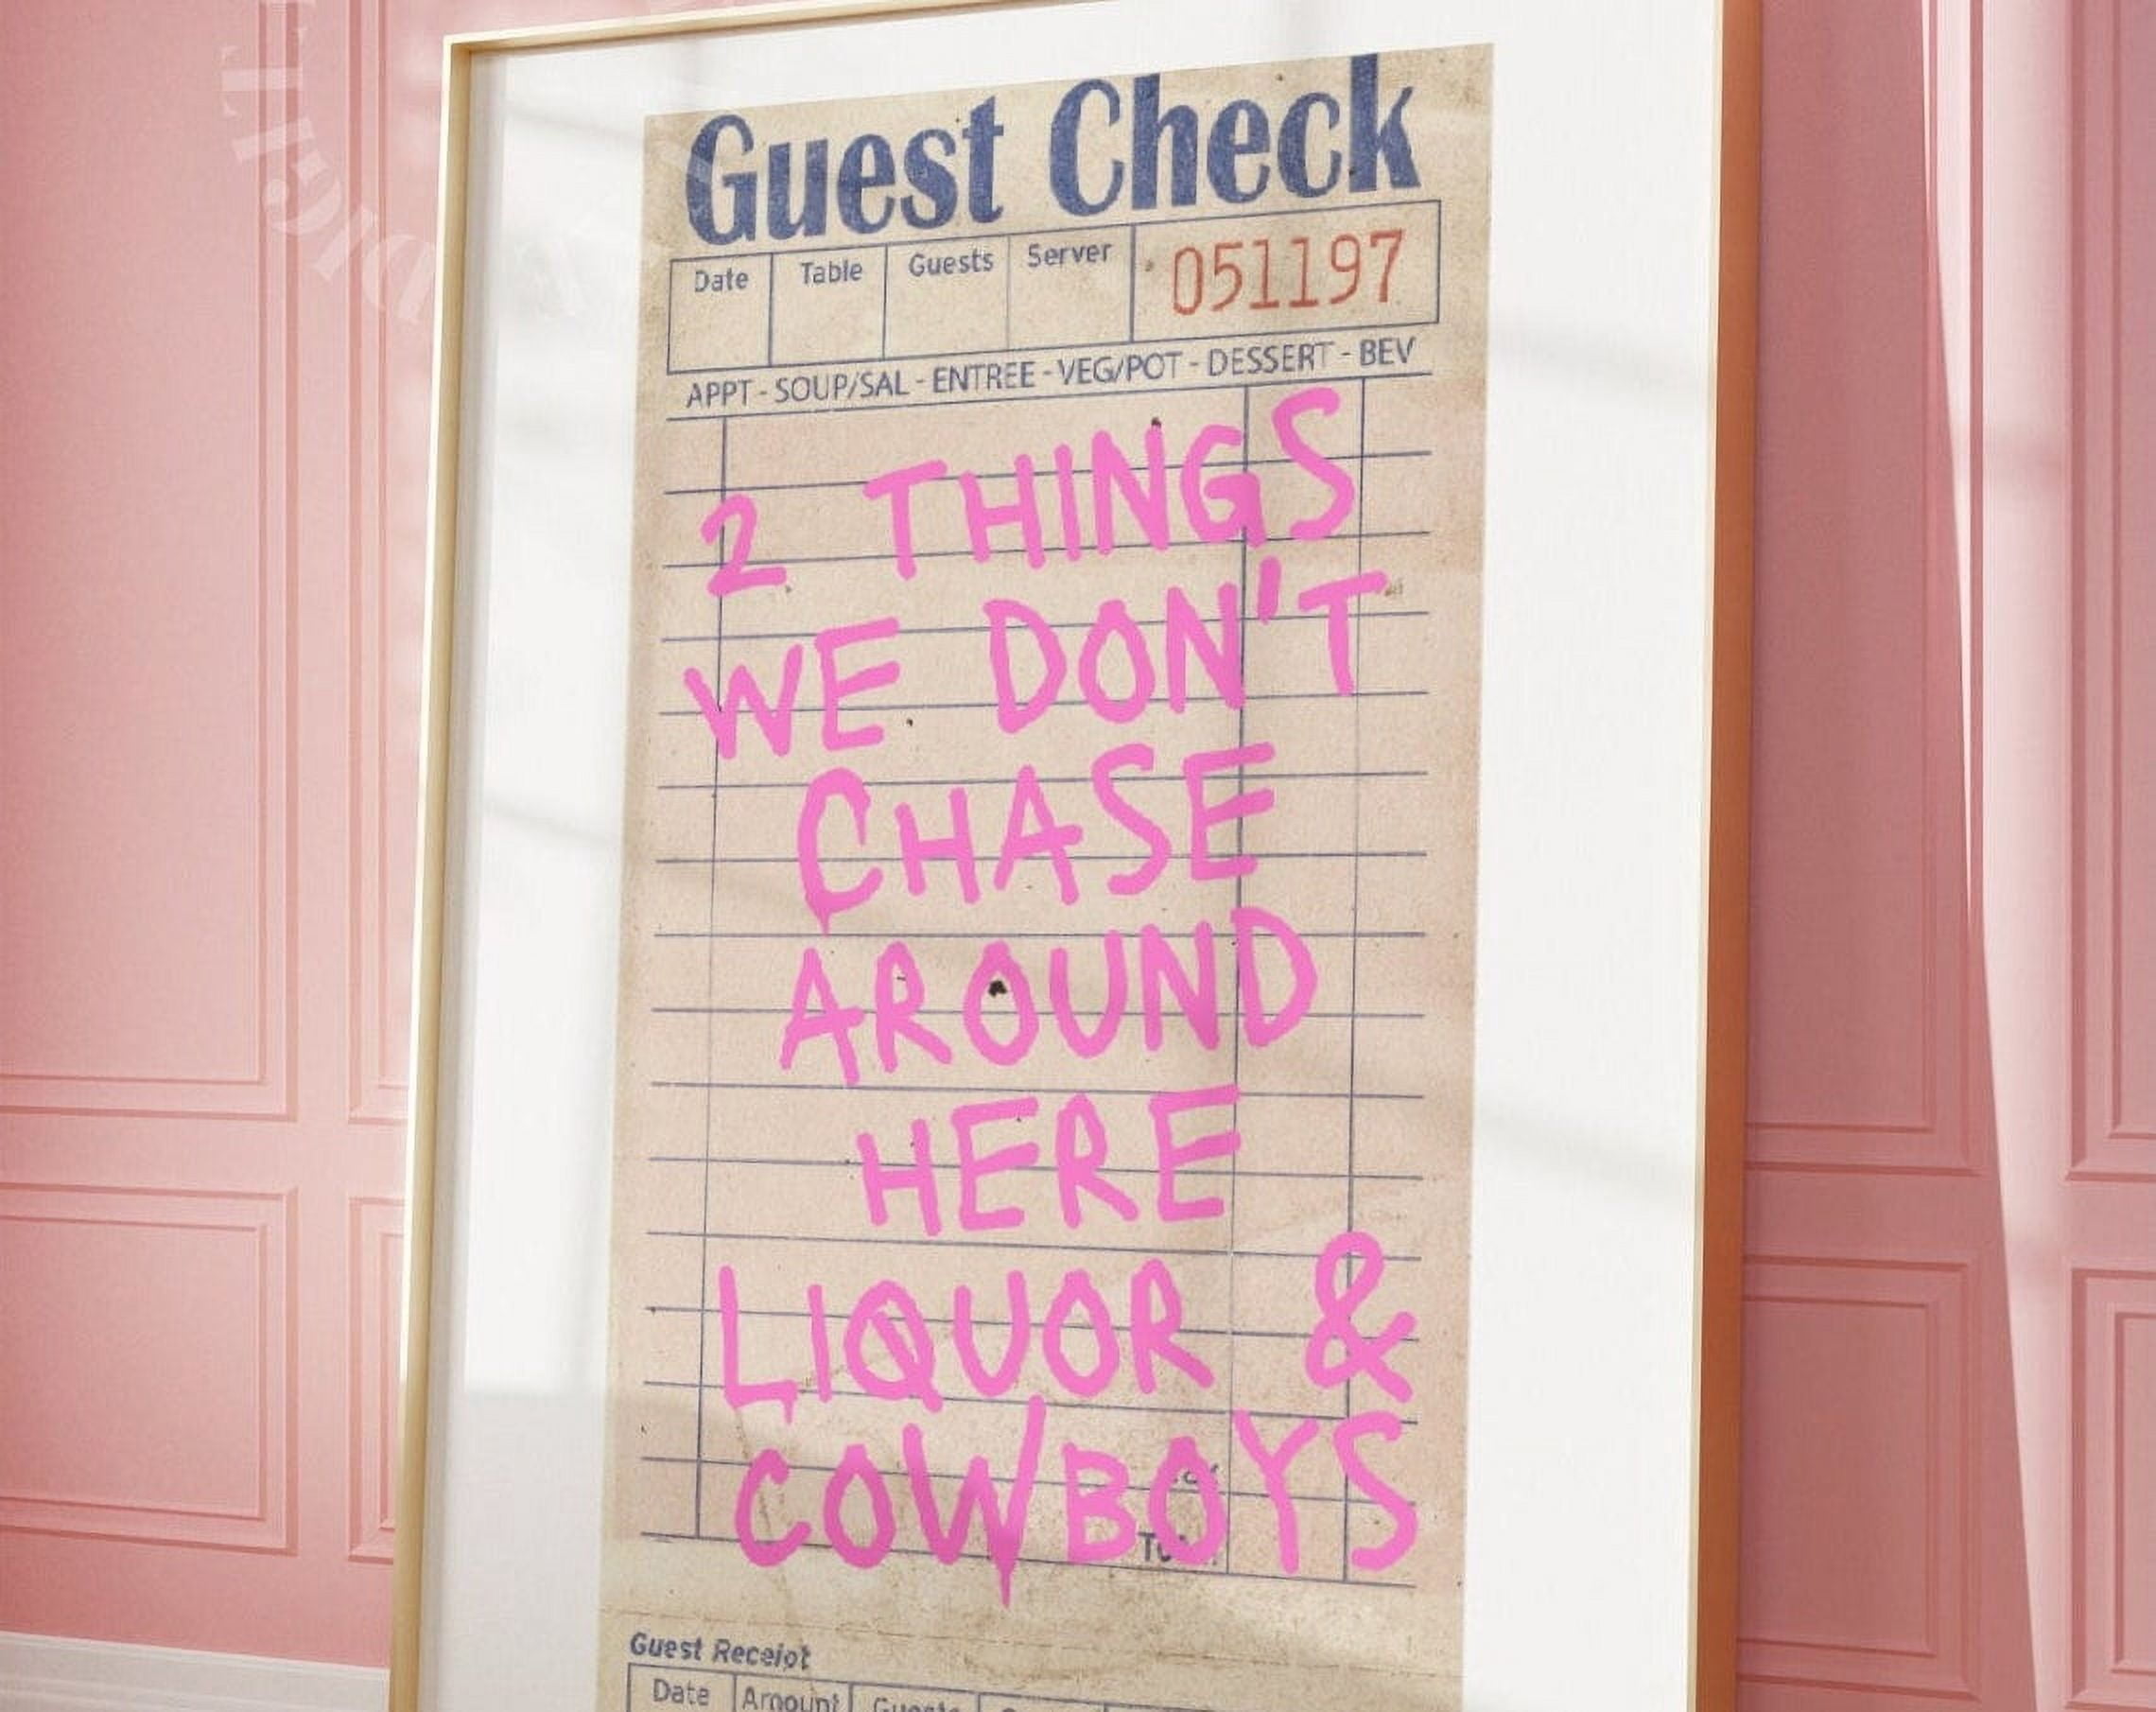 Guest Check
Date Table Guests Server 051197
APPT - SOUP/SAL - ENTREE - VEG/POT - DESSERT - BEV
2 THINGS
WE DON'T
CHASE
AROUND
HERE
LIQUOR &
COWBOYS
Guest Receipt
Date Amount Guests